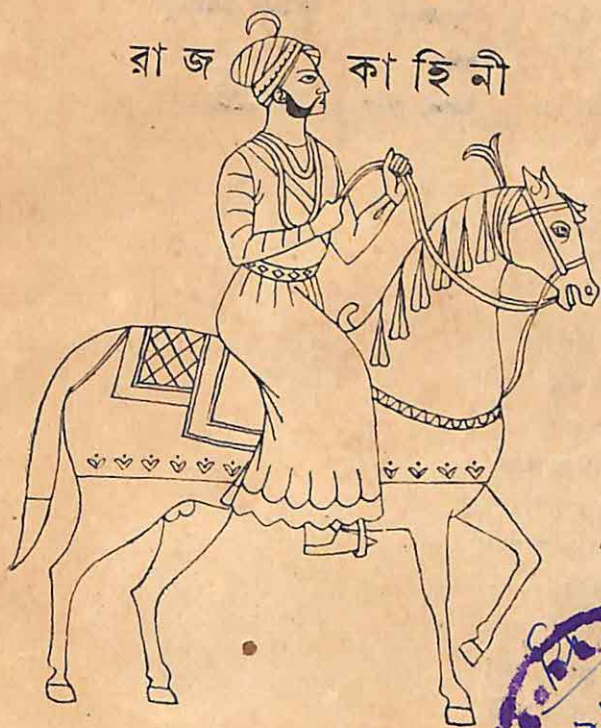 রাজ কাহিনী